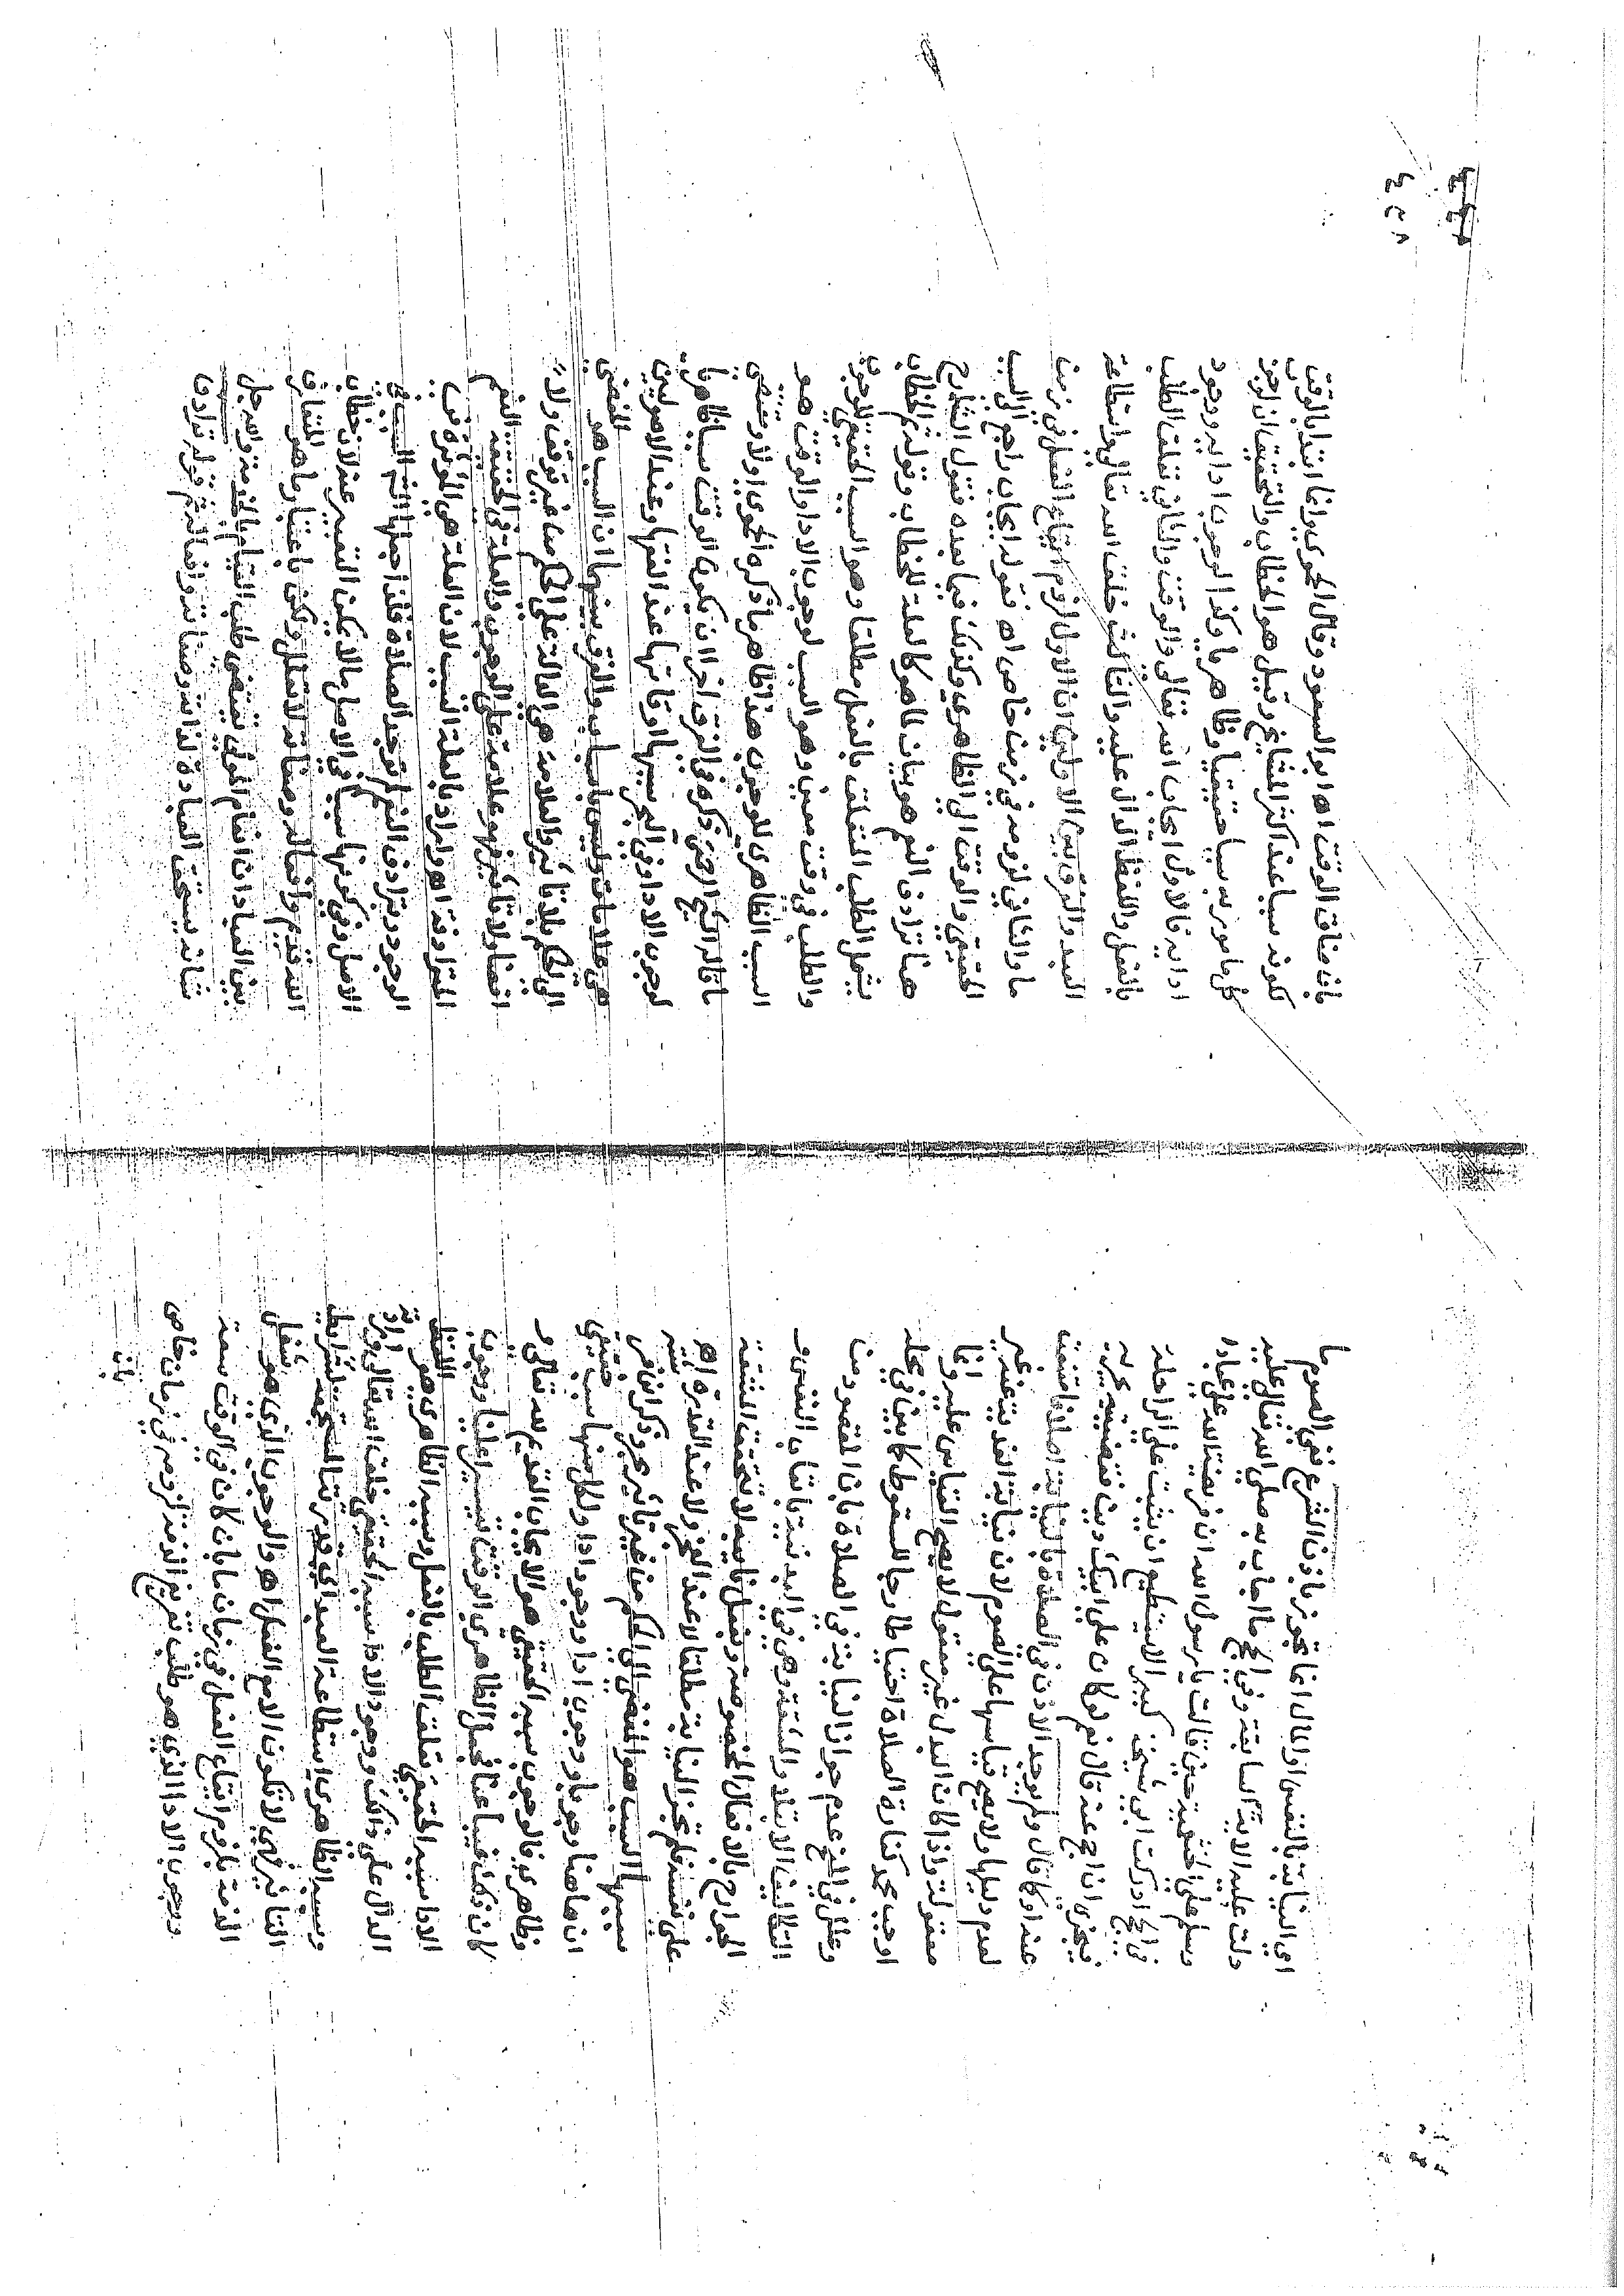 اي النيابة بالنفس او المال انما تجوز باذن الشرع ففي الصوم ما
دلت عليه الاية السابقة وفي الحج ما اجاب به صلى الله تعالى عليه
وسلم على الخثعمية حين قالت يا رسول الله ان فريضة الله على عباده
في الحج ادركت ابي شيخ كبير الا يستطيع ان يثبت على الراحلة
فيجزي ان احج عنه قال نعم لو كان على ابيك دين فقضيته يجزيه
عنه او كما قال ولم يوجد الاذن في الصلاة بالنيابة اصلا فامتنعت
لعدم دليلها ولا يصح قياسها على الصوم لان نيابة الفدية عنه غير
معقولة واذا كان البدل غير معقول لا يصح القياس عليه وانما
اوجب محمد كفارة الصلاة احتياطا ورجا للسقوط كما بين في محله
وعلل في المنح عدم جواز النيابة في الصلاة بان المقصود من
التكاليف الابتلاء والمشقة وهي في البدنية باتعاب النفس و
الجوارح بالافعال المخصوصة وبفعل نائبه لا تتحقق المشقة
على نفسه فلم تجز النيابة مطلقا لا عند العجز ولا عند القدرة اه
سببها السبب هو المفضي الى الحكم من غير تاثير بحر وذكر ابن فرشته
ان هاهنا وجوبا ووجوب ادا ووجود ادا ولكل منها سبب حقيقي
وظاهري فالوجوب سببه الحقيقي هو الايجاب القديم لله تعالى و
كان ذلك غيبا عنا فجعل الظاهري الوقت تيسيرا علينا ووجوب
الادا سببه الحقيقي تعلق الطلب بالفعل وسببه الظاهري هو اللفظ
الدال على ذلك ووجود الادا سببه الحقيقي خلق الله تعالى وارادته
وسببه الظاهري استطاعة العبد اي قدرته المستجمعة لشرايط
التاثير فهي لا تكون الا مع الفعل اه والوجوب الذي هو شغل
الذمة بلزوم ايقاع الفعل في زمان ما بان كان في الوقت سعة
ووجوب الادا الذي هو طلب تفريغ الذمة لزومه في زمان خاص
بان
الوقت اه ابو السعود وقال الحموي وانما ابتدا بالوقت
لكونه سببا عند اكثر المشايخ وقيل هو الخطاب والتحقيق ان لوجوب
كل مامور به سببا حقيقيا وظاهريا وكذا لوجوب ادايه ووجود
ادايه فالاول ايجاب الله تعالى والوقت والثاني تعلق الطلب
بالفعل واللفظ الدال عليه والثالث خلق الله تعالى واستطاعة
العبد والفرق بين الاولين ان الاول لزوم ايقاع الفعل في زمن
ما والثاني لزومه في زمن خاص اه فقوله ايجاب راجع الى السبب
الحقيقي والوقت الى الظاهري وكذلك فيما بعده فقول الشارح
هنا ترادف النعم هو بيان لما هو كالعلة للخطاب وقوله ثم الخطاب
يشمل الطلب المتعلق بالفعل مطلقا وهو السبب الحقيقي للوجوب
والطلب في وقت معين وهو السبب لوجوب الادا والوقت هو
السبب الظاهري للوجوب هذا ظاهر ما ذكره الحموي اولا ومقتضى
ما قاله الشيخ الرحمتي ذكره في الفرق اخرا ان يكون الوقت سببا ظاهريا
لوجوب الادا وفي البحر سببها اوقاتها عند الفقها وعند الاصوليين
هي علامات وليس باسباب والفرق بينهما ان السبب هو المفضي
الى الحكم بلا تاثير والعلامة هي الدالة على الحكم من غير توقف ولا
افضا ولا تاثير فهو علامة على الوجوب والعلة في الحقيقة النعم
المترادفة اه واراد بالعلة السبب لان العلة هي المؤثرة في
الوجود وبترادف النعم لم توجد الصلاة فلذا جعلها النهر السبب في
الاصل وفي كونها سببا في الاصل ما لا يمكن التعبير عنه لان خطاب
الله قديم وافعاله وصفاته لا تعلل ولكن باعتبار ما هو المتعارف
بين العباد ان انعام المولى يقتضي طلب القيام بالخدمة والله جل
شانه يستحق العبادة لذاته وصفاته وافعاله ثم قوله ترادف